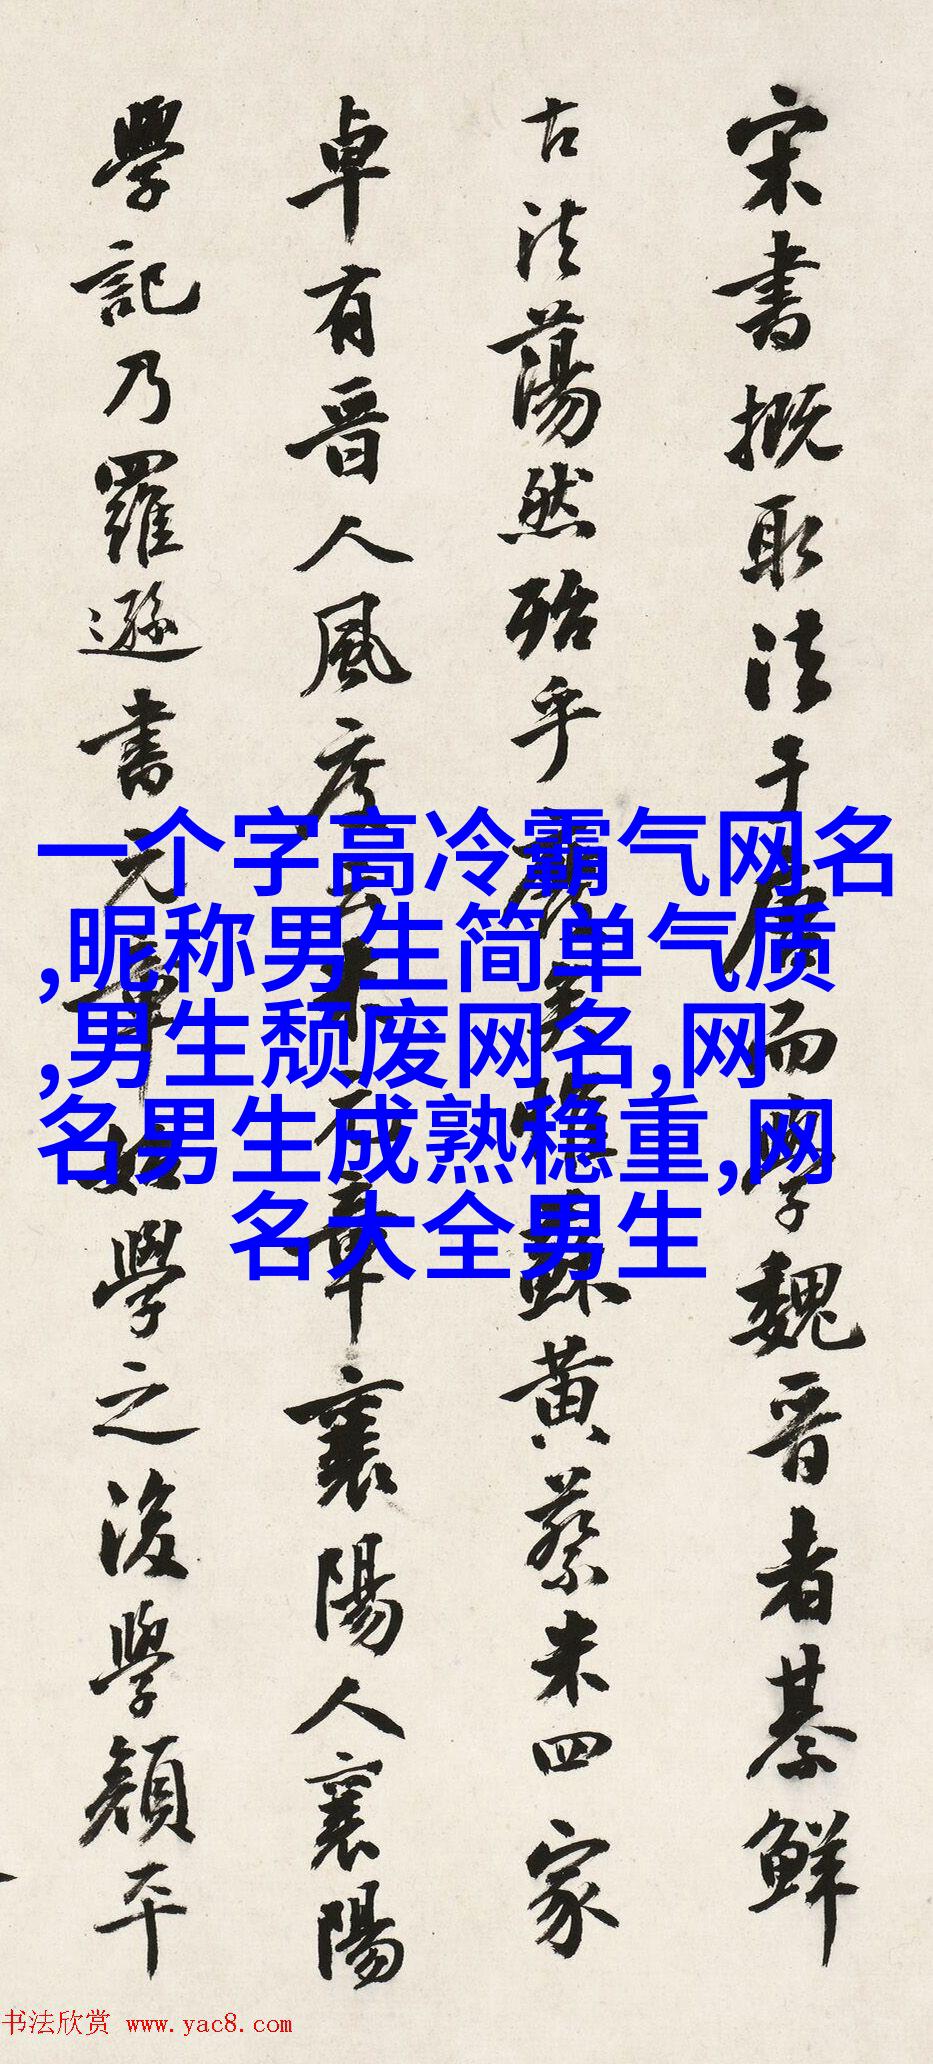 宋書概取法于唐而學魏晋者綦鮮
古法蕩然殆乎蘇黄蔡米四家
卓有晋人風度章襄陽人襄陽
學記乃羅遜書元章始學之後學顔平
一个字高冷霸气网名
,昵称男生简单气质
,男生颓废网名,网
名男生成熟稳重,网
名大全男生
书法欣赏 www.yac8.com